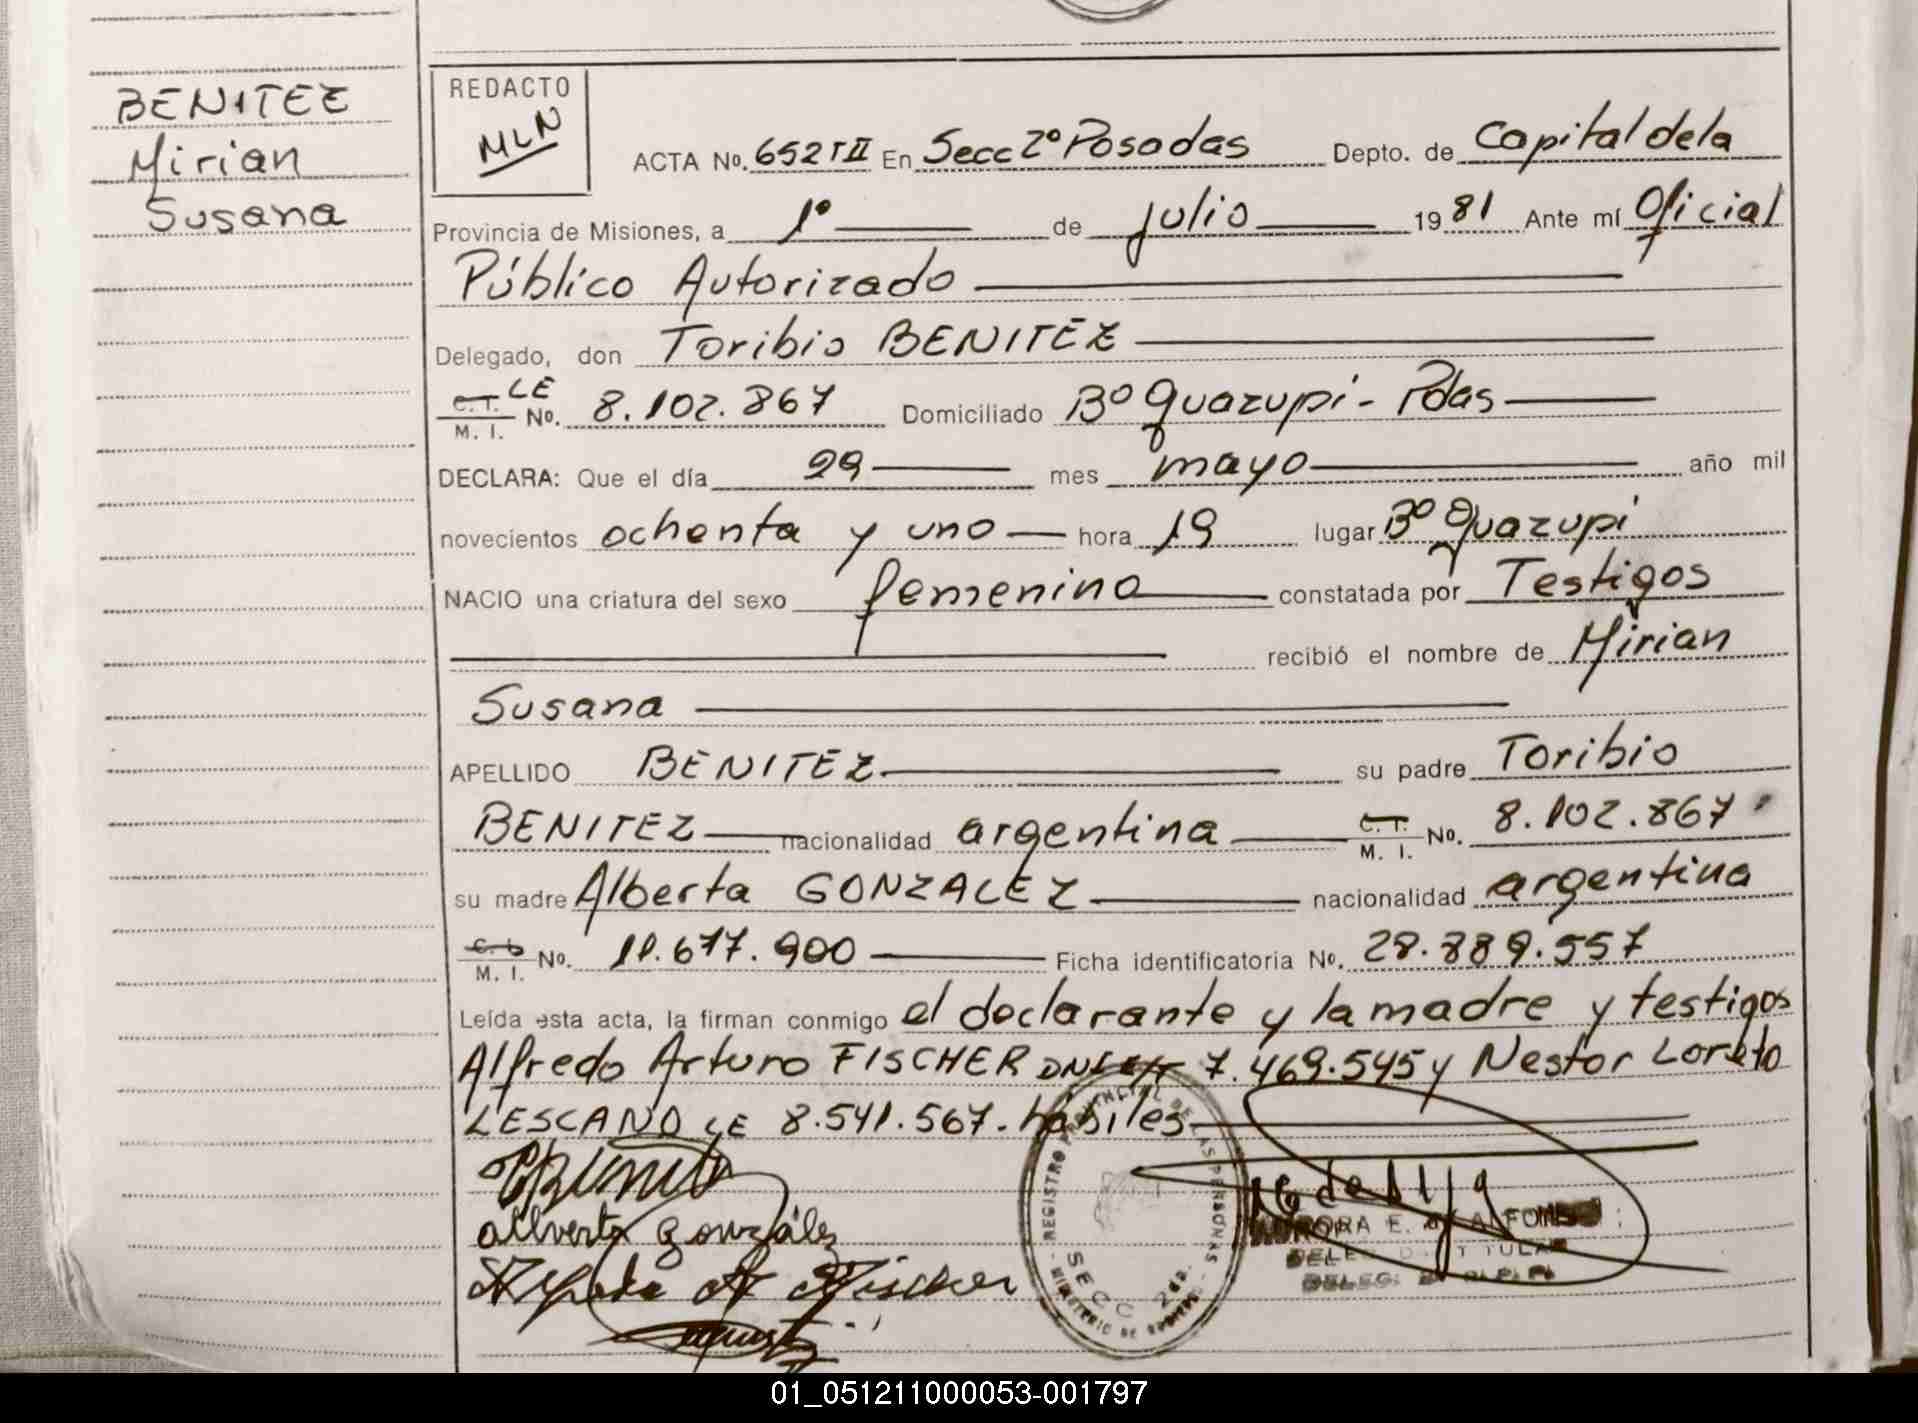 BENITEZ
Mirian
Susana
REDACTO
MLN
ACTA No. 652 T II En Secc 2º Posadas Depto. de Capital de la
Provincia de Misiones, a 1º de julio 1981 Ante mí Oficial
Público Autorizado
Delegado, don Toribio BENITEZ
C. I. LE
M. I. No. 8.102.867 Domiciliado Bº Guazupi - Pdas
DECLARA: Que el día 29 mes mayo año mil
novecientos ochenta y uno hora 19 lugar Bº Guazupi
NACIO una criatura del sexo femenino constatada por Testigos
recibió el nombre de Mirian
Susana
APELLIDO BENITEZ su padre Toribio
BENITEZ nacionalidad argentina C. I. M. I. No. 8.102.867
su madre Alberta GONZALEZ nacionalidad argentina
M. I. No. 11.677.900 Ficha identificatoria No. 28.889.557
Leída esta acta, la firman conmigo el declarante y la madre y testigos
Alfredo Arturo FISCHER DNI 7.469.545 y Nestor Loreto
LESCANO LE 8.541.567. hábiles
allverta gonzález
REGISTRO PROVINCIAL DE LAS PERSONAS
SECC 2da.
MINISTERIO DE GOBIERNO
AURORA E. de ALFONSO
01_051211000053-001797